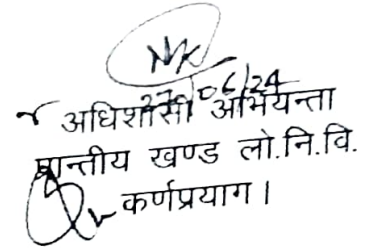 27/06/24
अधिशासी अभियन्ता
प्रान्तीय खण्ड लो.नि.वि.
कर्णप्रयाग।